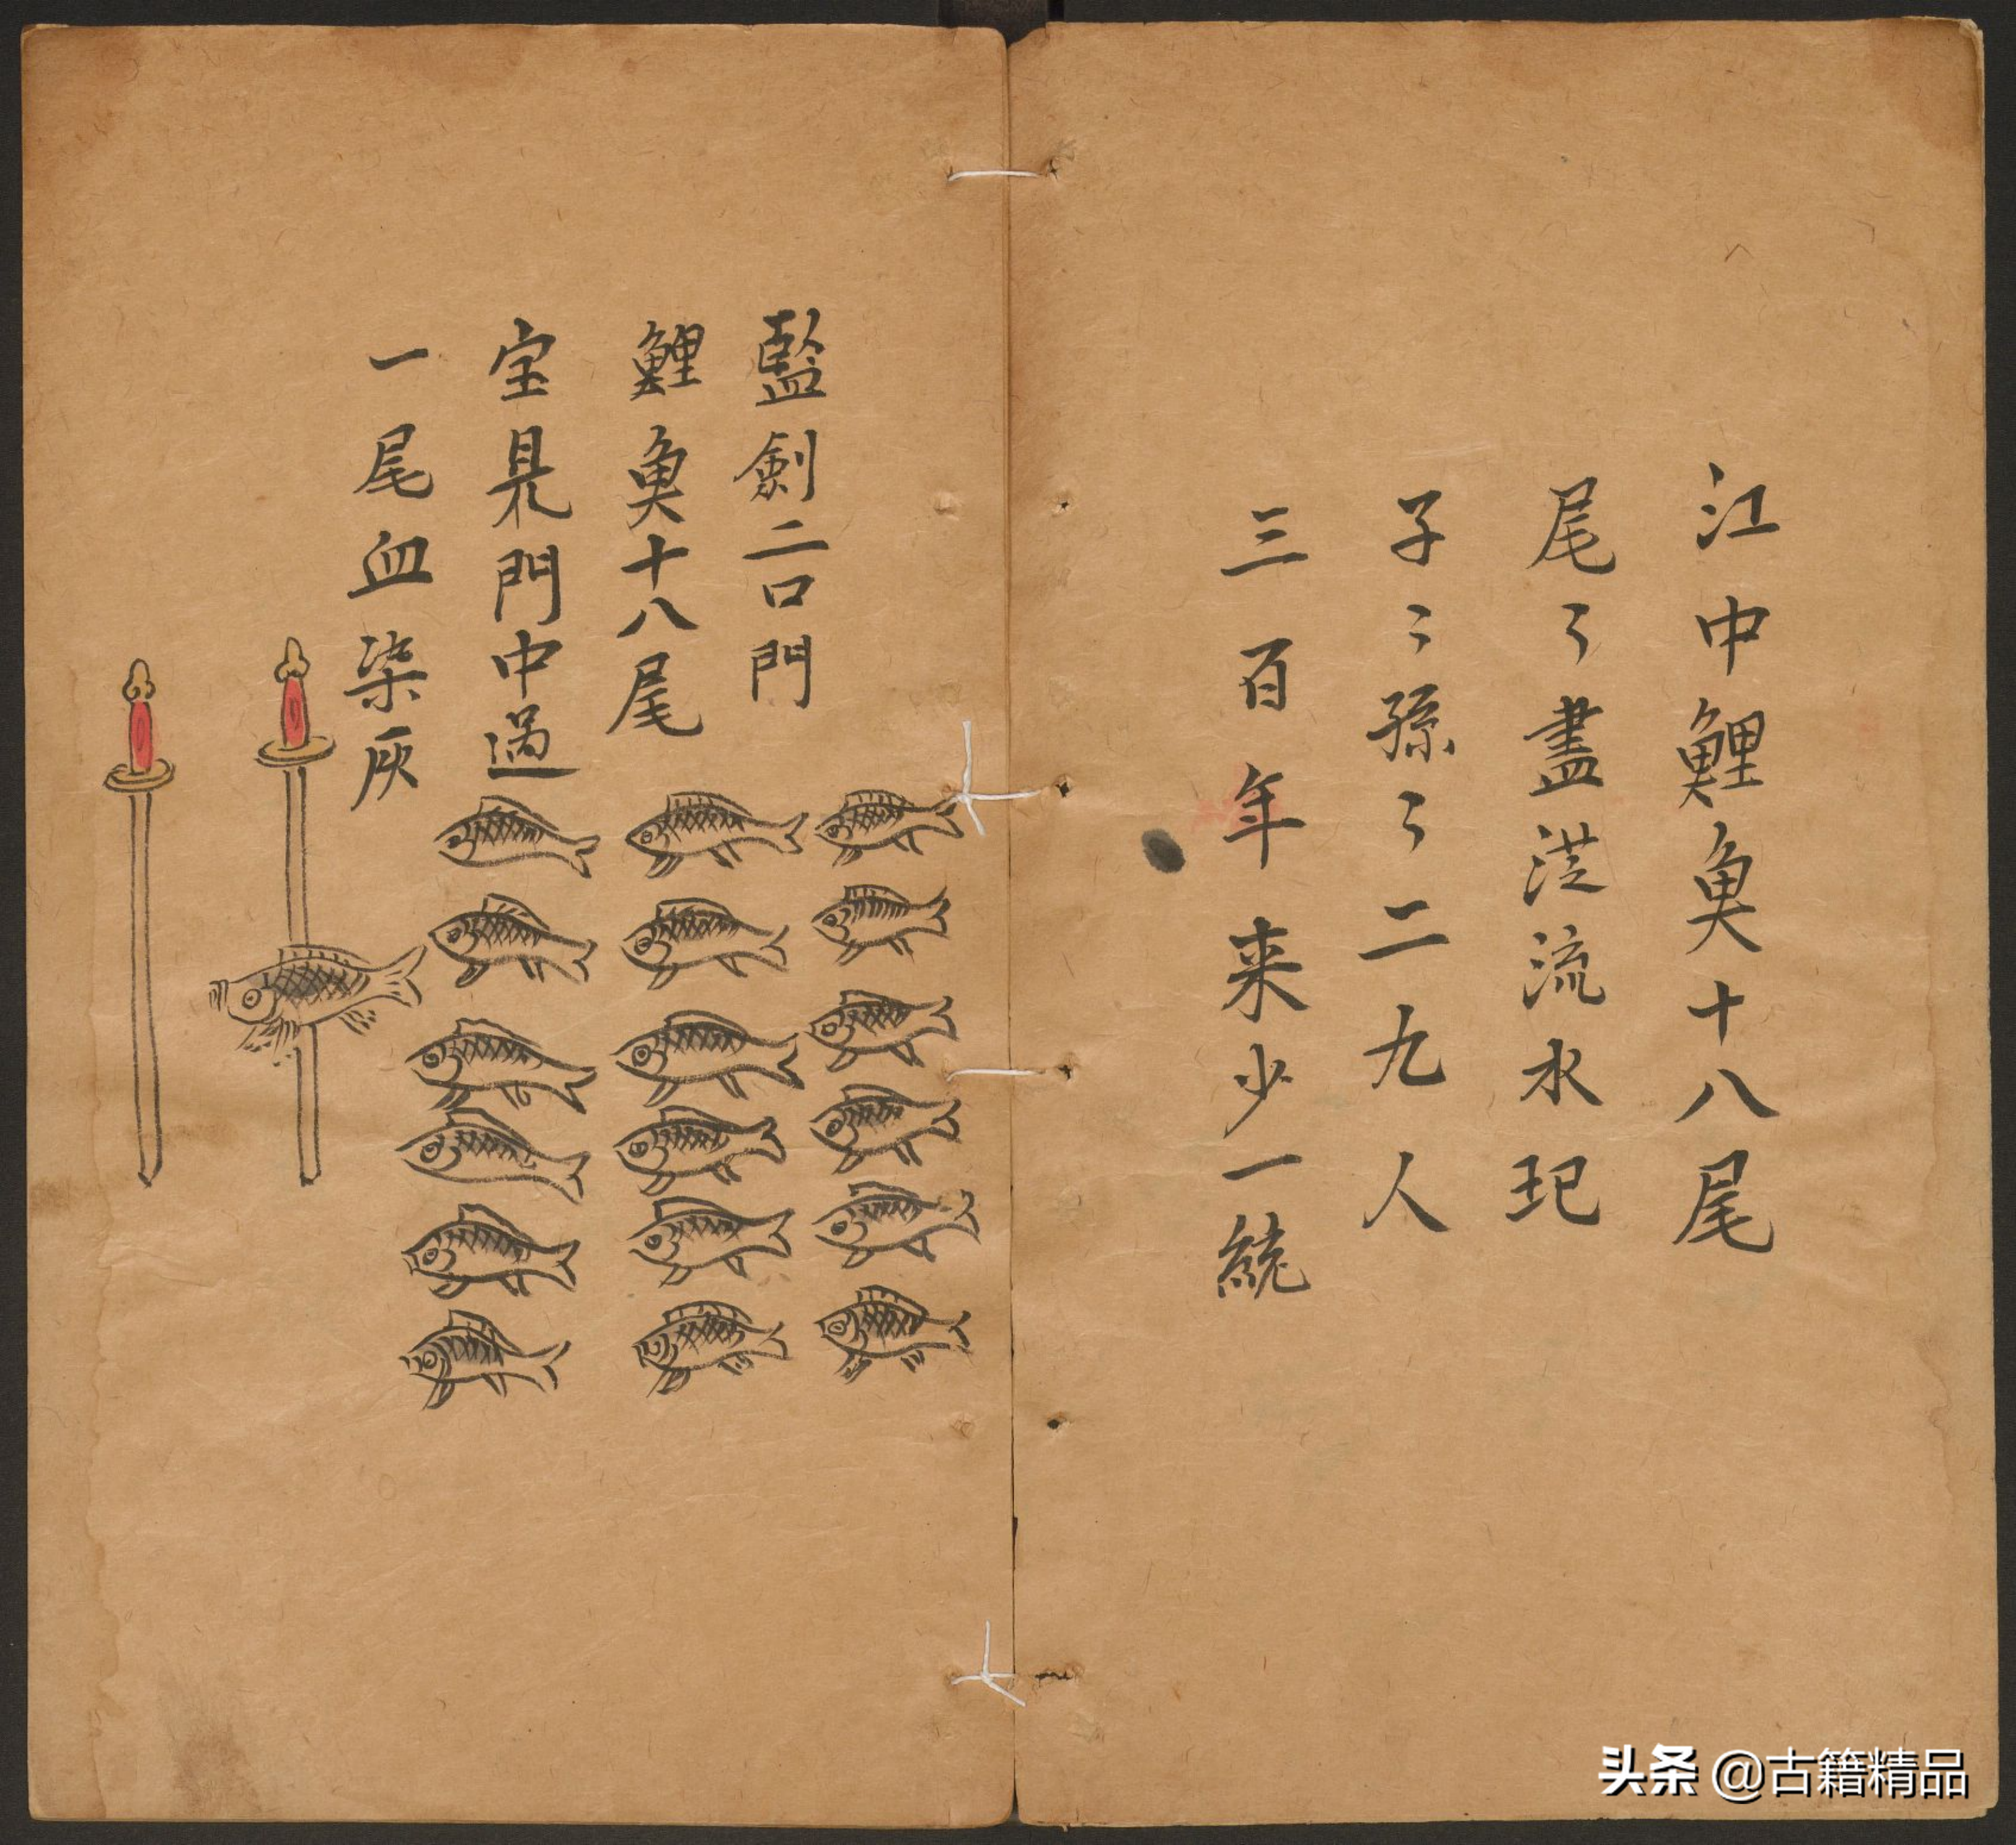 江中鯉魚十八尾
尾々盡從流水玘
子々孫々二九人
三百年来少一統
藍劍二口門
鯉魚十八尾
宝見門中過
一尾血染灰
头条 @古籍精品